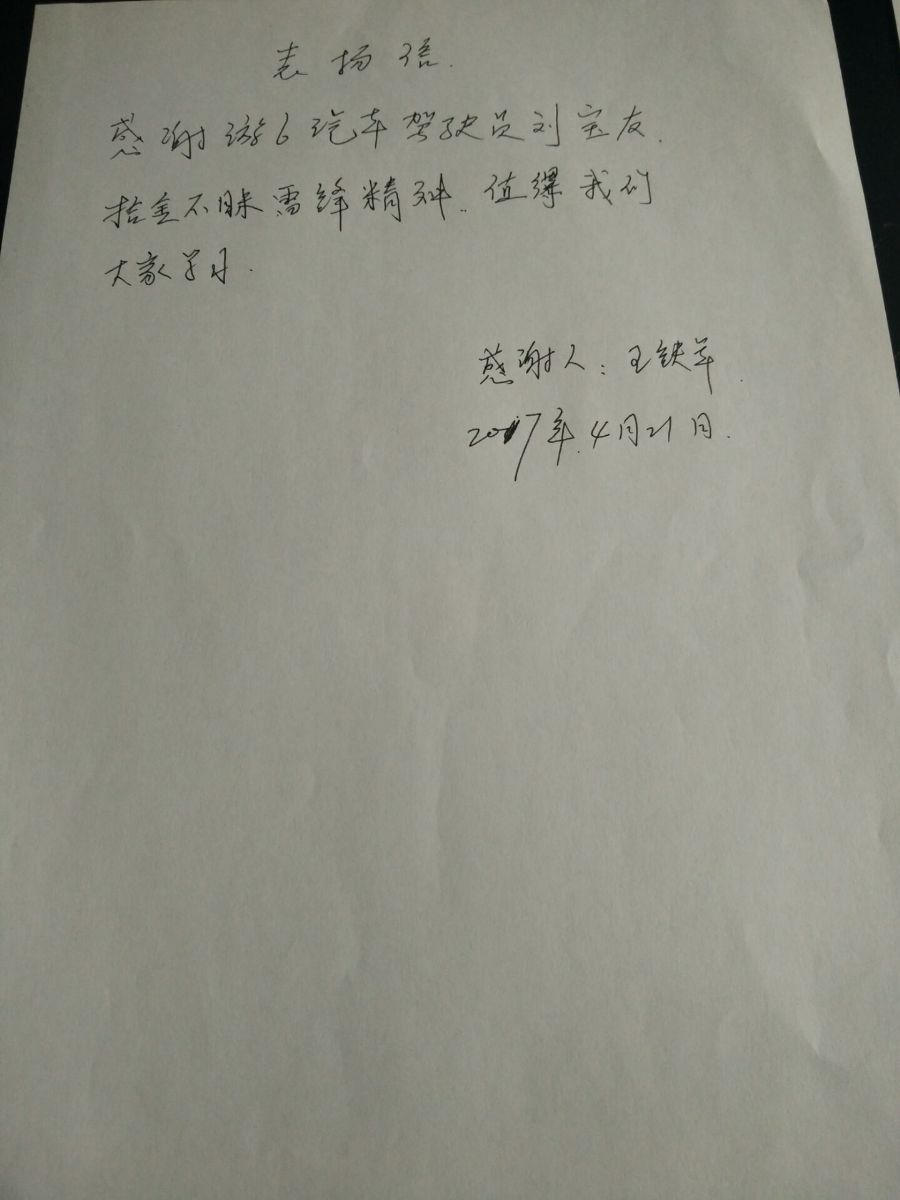 表扬信.
感谢游6汽车驾驶员刘宝友.
拾金不昧雷锋精神.值得我们
大家学习.
感谢人:王铁军.
2017年.4月21日.